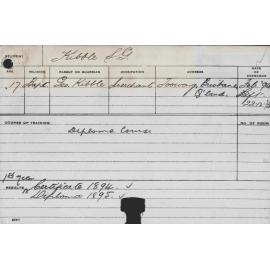 STUDENT Kibble S.G.
AGE RELIGION PARENT OR GUARDIAN OCCUPATION ADDRESS DATE OF ENTRANCE
17 Bapt. Geo. Kibble Merchant Toowong Brisbane Feb. '94
Q'land.
COURSE OF TRAINING NO. OF ROOM
Diploma Course
1st year
RESULTS Certificate 1894. ✓
Diploma 1895. ✓